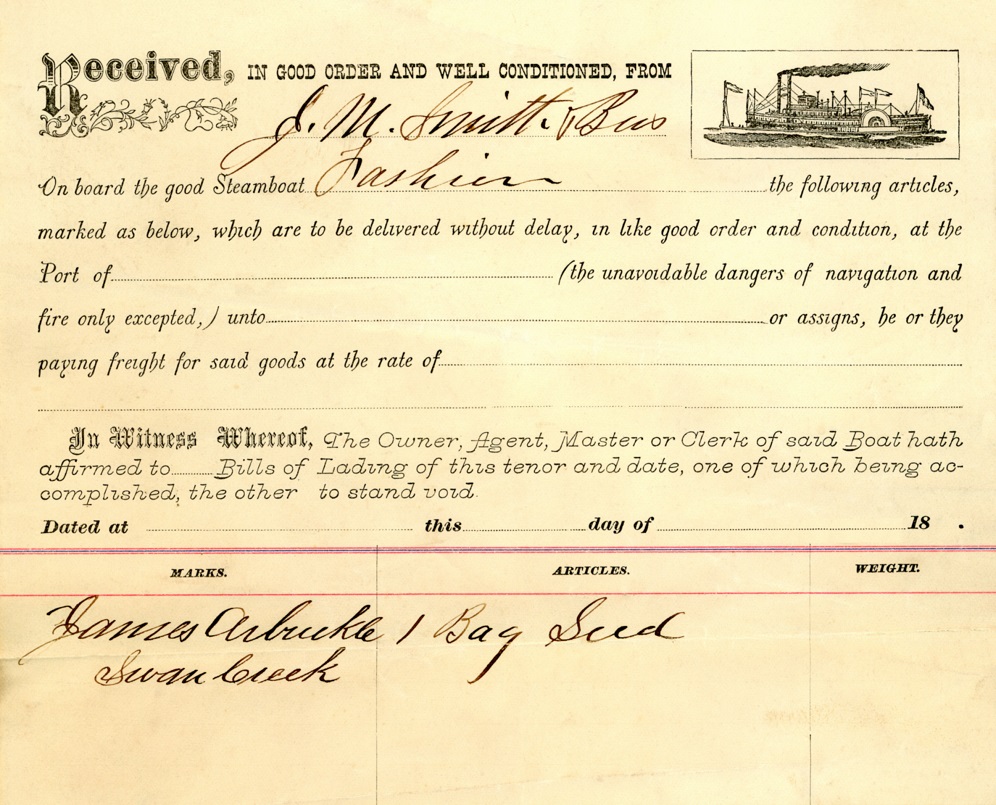 Received, IN GOOD ORDER AND WELL CONDITIONED, FROM
J. M. Smith & Bus
On board the good Steamboat Fashion the following articles,
marked as below, which are to be delivered without delay, in like good order and condition, at the
Port of (the unavoidable dangers of navigation and
fire only excepted,) unto or assigns, he or they
paying freight for said goods at the rate of
In Witness Whereof, The Owner, Agent, Master or Clerk of said Boat hath
affirmed to Bills of Lading of this tenor and date, one of which being ac-
complished, the other to stand void.
Dated at this day of 18 .
MARKS. ARTICLES. WEIGHT.
James Arbuckle 1 Bag Seed
Swan Creek